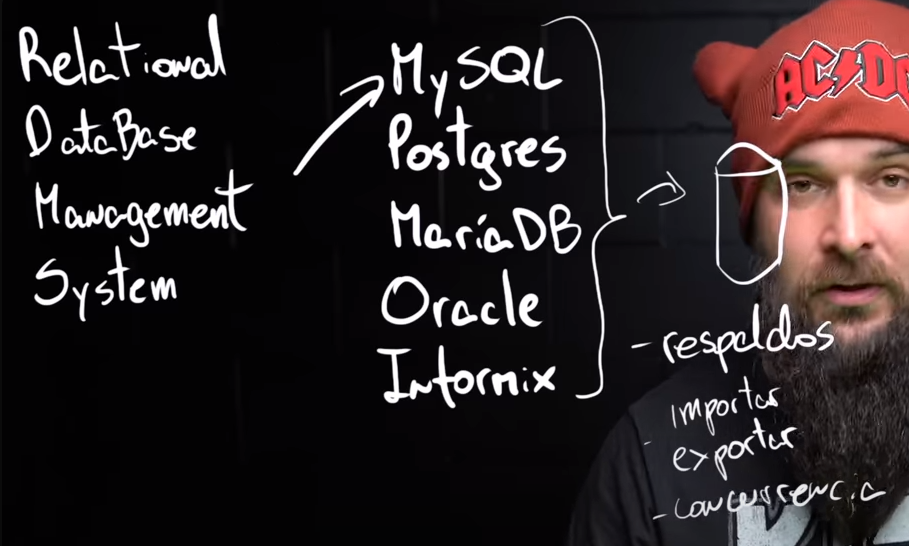 Relational
DataBase
Management
System
MySQL
Postgres
MariaDB
Oracle
Informix
- respaldos
importar
- exportar
- concurrencia
AC⚡DC